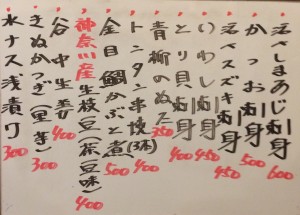 活〆しまあじ刺身 600
かつお刺身 500
活〆スズキ刺身 450
いわし刺身 450
とり貝刺身 400
青柳のぬた 350
トンタン串焼(3本)
金目鯛かぶと煮 500
神奈川産生枝豆(茶豆味) 400
谷中生姜 400
きぬかつぎ(里芋) 300
水ナス浅漬け 300